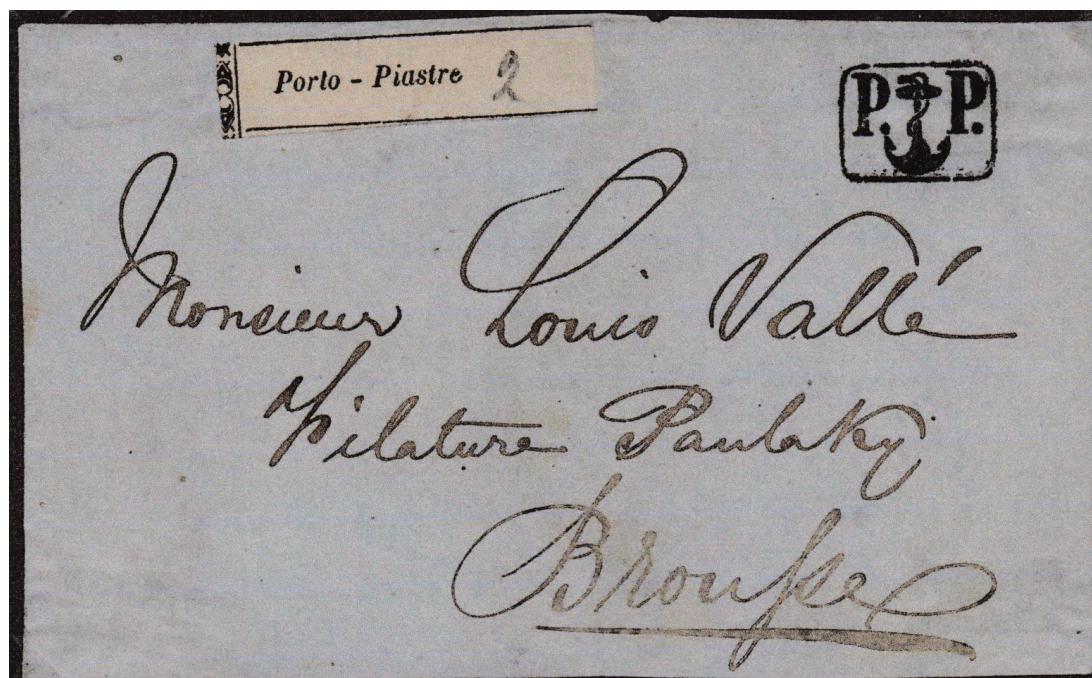 Porto - Piastre 2
P. P.
Monsieur Louis Vallé
Filature Paulaky
Brousse